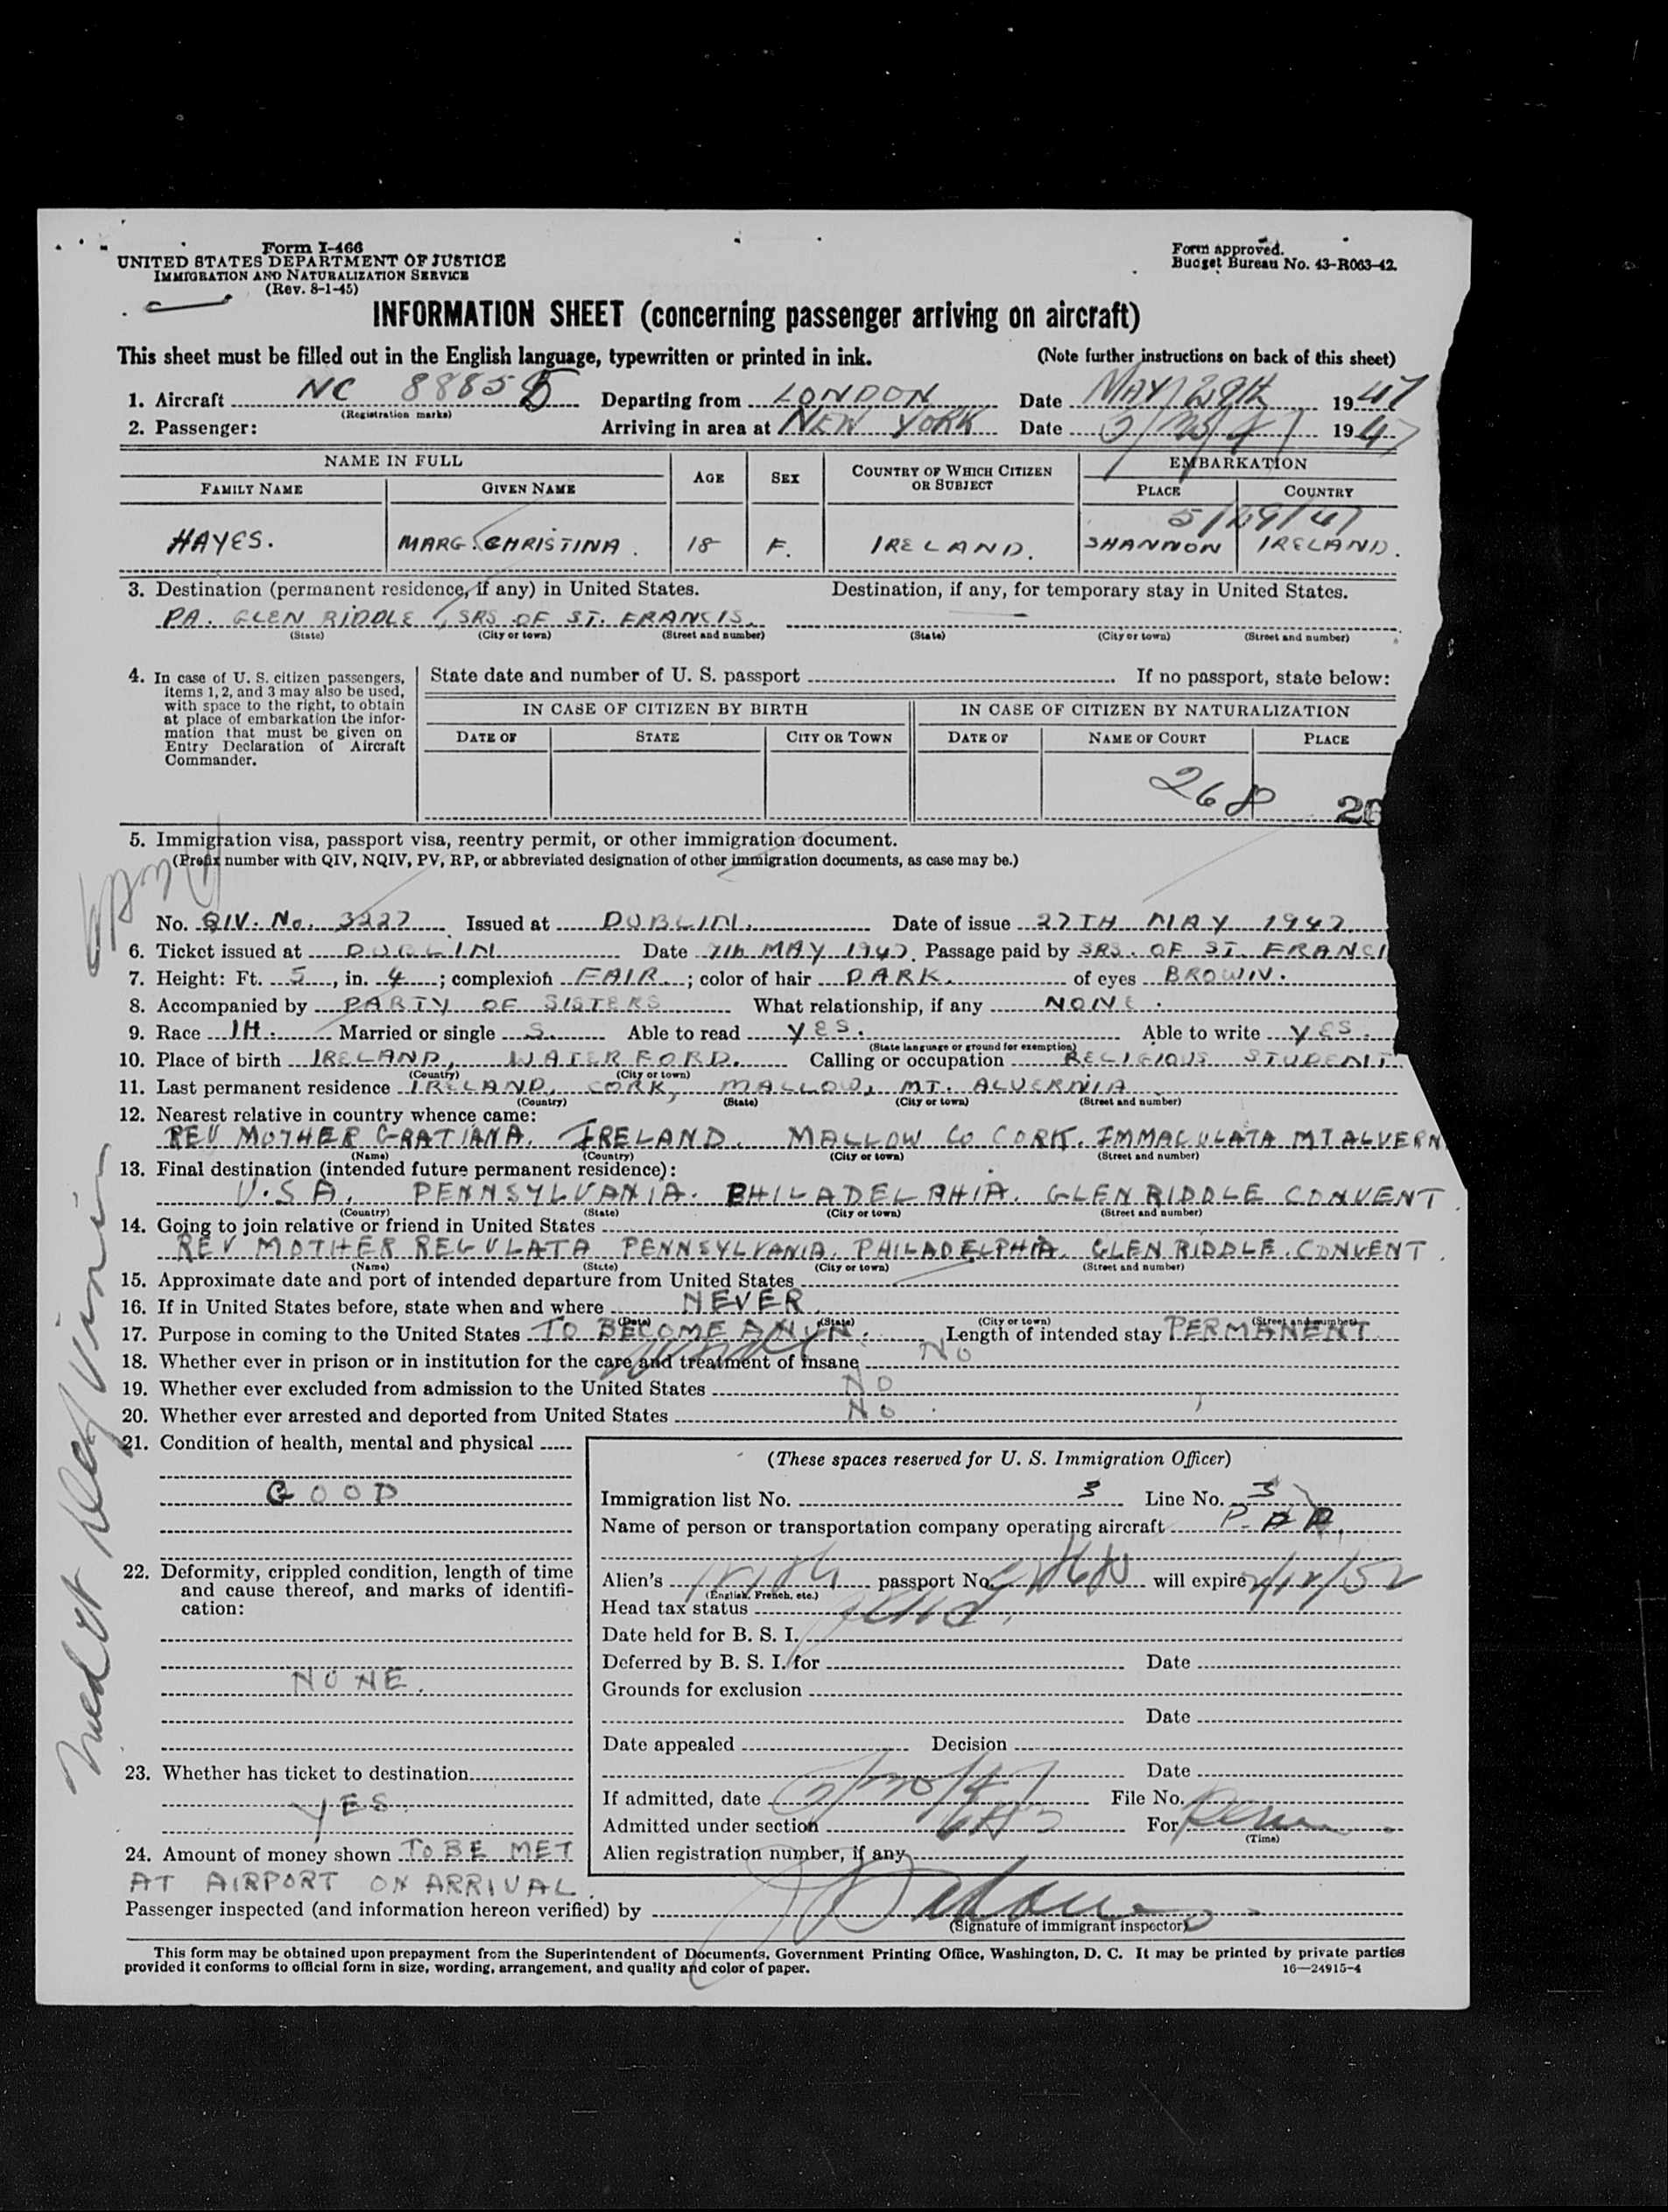 Form I-466
UNITED STATES DEPARTMENT OF JUSTICE
IMMIGRATION AND NATURALIZATION SERVICE
(Rev. 8-1-45)
Form approved.
Budget Bureau No. 43-R063-42.
INFORMATION SHEET (concerning passenger arriving on aircraft)
This sheet must be filled out in the English language, typewritten or printed in ink. (Note further instructions on back of this sheet)
1. Aircraft NC 88858 Departing from LONDON Date MAY 29th 1947
(Registration marks)
2. Passenger: Arriving in area at NEW YORK Date 1947
NAME IN FULL AGE SEX COUNTRY OF WHICH CITIZEN OR SUBJECT EMBARKATION
FAMILY NAME GIVEN NAME PLACE COUNTRY
5/29/47
HAYES. MARG. CHRISTINA. 18 F. IRELAND. SHANNON IRELAND.
3. Destination (permanent residence, if any) in United States. Destination, if any, for temporary stay in United States.
PA. GLEN RIDDLE, SRS OF ST. FRANCIS. —
(State) (City or town) (Street and number) (State) (City or town) (Street and number)
4. In case of U. S. citizen passengers, items 1, 2, and 3 may also be used, with space to the right, to obtain at place of embarkation the information that must be given on Entry Declaration of Aircraft Commander.
State date and number of U. S. passport If no passport, state below:
IN CASE OF CITIZEN BY BIRTH IN CASE OF CITIZEN BY NATURALIZATION
DATE OF STATE CITY OR TOWN DATE OF NAME OF COURT PLACE
268 26
5. Immigration visa, passport visa, reentry permit, or other immigration document.
(Prefix number with QIV, NQIV, PV, RP, or abbreviated designation of other immigration documents, as case may be.)
No. QIV. No. 3227 Issued at DUBLIN. Date of issue 27TH MAY 1947.
6. Ticket issued at DUBLIN Date 7th MAY 1947. Passage paid by SRS. OF ST. FRANCI
7. Height: Ft. 5, in. 4; complexion FAIR.; color of hair DARK. of eyes BROWN.
8. Accompanied by PARTY OF SISTERS What relationship, if any NONE.
9. Race IH. Married or single S. Able to read YES. Able to write YES.
(State language or ground for exemption)
10. Place of birth IRELAND, WATERFORD. Calling or occupation RELIGIOUS STUDENT
(Country) (City or town)
11. Last permanent residence IRELAND, CORK, MALLOW, MT. ALVERNIA
(Country) (State) (City or town) (Street and number)
12. Nearest relative in country whence came:
REV MOTHER GRATIANA. IRELAND. MALLOW CO CORK. IMMACULATA MT ALVERN
(Name) (Country) (City or town) (Street and number)
13. Final destination (intended future permanent residence):
U.S.A. PENNSYLVANIA. PHILADELPHIA. GLEN RIDDLE CONVENT.
(Country) (State) (City or town) (Street and number)
14. Going to join relative or friend in United States
REV MOTHER REGULATA PENNSYLVANIA. PHILADELPHIA. GLEN RIDDLE. CONVENT.
(Name) (State) (City or town) (Street and number)
15. Approximate date and port of intended departure from United States —
16. If in United States before, state when and where NEVER.
(Date) (State) (City or town) (Street and number)
17. Purpose in coming to the United States TO BECOME A NUN. Length of intended stay PERMANENT
18. Whether ever in prison or in institution for the care and treatment of insane NO
19. Whether ever excluded from admission to the United States NO
20. Whether ever arrested and deported from United States NO
21. Condition of health, mental and physical
GOOD
22. Deformity, crippled condition, length of time and cause thereof, and marks of identification:
NONE.
23. Whether has ticket to destination
YES.
24. Amount of money shown TO BE MET
AT AIRPORT ON ARRIVAL.
(These spaces reserved for U. S. Immigration Officer)
Immigration list No. 3 Line No. 3
Name of person or transportation company operating aircraft P.A.A.
Alien's Irish passport No. will expire 52
(English, French, etc.)
Head tax status paid.
Date held for B. S. I.
Deferred by B. S. I. for Date
Grounds for exclusion
Date
Date appealed Decision
Date
If admitted, date 5/30/47 File No.
Admitted under section For Perm
(Time)
Alien registration number, if any
Passenger inspected (and information hereon verified) by
(Signature of immigrant inspector)
This form may be obtained upon prepayment from the Superintendent of Documents, Government Printing Office, Washington, D. C. It may be printed by private parties
provided it conforms to official form in size, wording, arrangement, and quality and color of paper. 16—24915-4